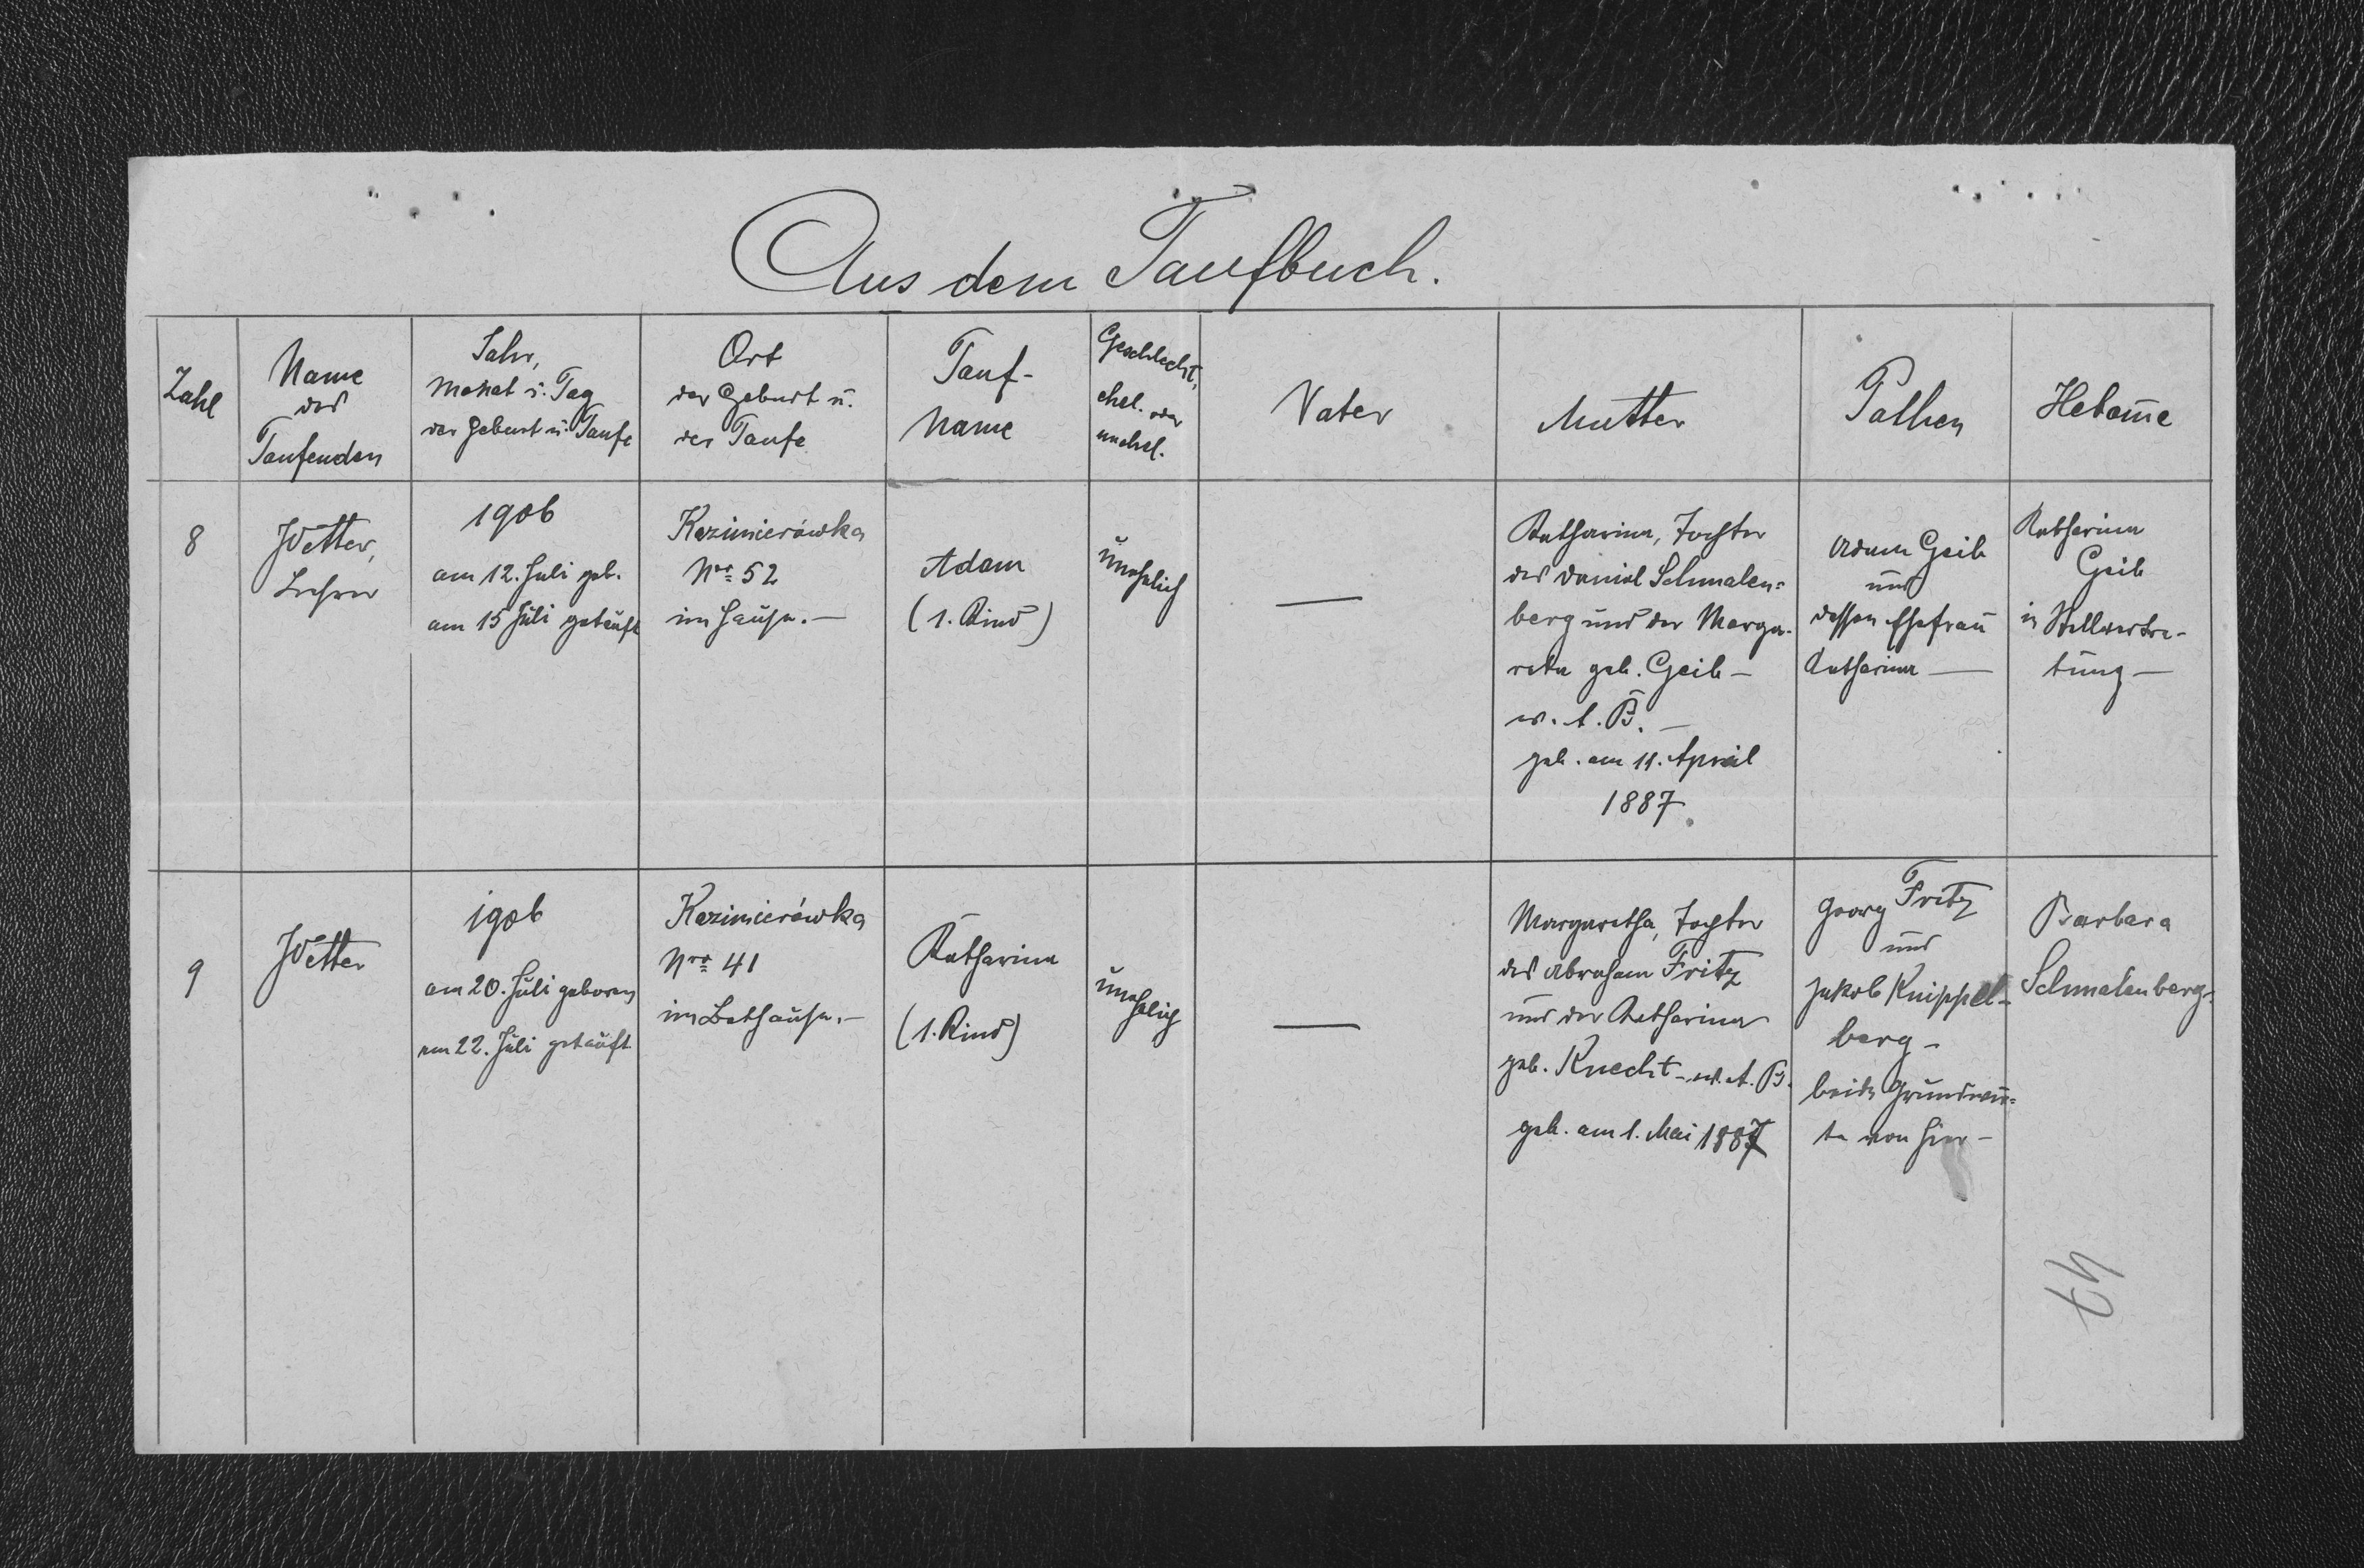 Aus dem Taufbuch.
Zahl
Name
des
Taufenden
Jahr,
Monat u. Tag
der Geburt u. Taufe
Ort
der Geburt u.
der Taufe
Tauf-
name
Geschlecht,
ehel. oder
unehel.
Vater
Mutter
Pathen
Hebam̄e
8
Wetter,
Lehrer
1906
am 12. Juli geb.
am 15 Juli getauft
Kazimierówka
Nro 52
im Hause. —
Adam
(1. Kind)
unehelich
—
Katharina, Tochter
des Daniel Schmalen=
berg und der Marga-
reta geb. Geib —
ev. A. B. —
geb. am 11. April
1887
Adam Geib
und
dessen Ehefrau
Katharina —
Katharina
Geib
in Stellvertre-
tung —
9
Wetter
1906
am 20. Juli geboren
am 22. Juli getauft
Kazimierówka
Nro 41
im Bethause. —
Katharina
(1. Kind)
unehelich
—
Margaretha, Tochter
des Abraham Fritz
und der Katharina
geb. Knecht - ev. A. B.
geb. am 1. Mai 1887
Georg Fritz
und
Jakob Knippel-
berg -
beide Grundwir=
te von hier -
Barbara
Schmalenberg-
47